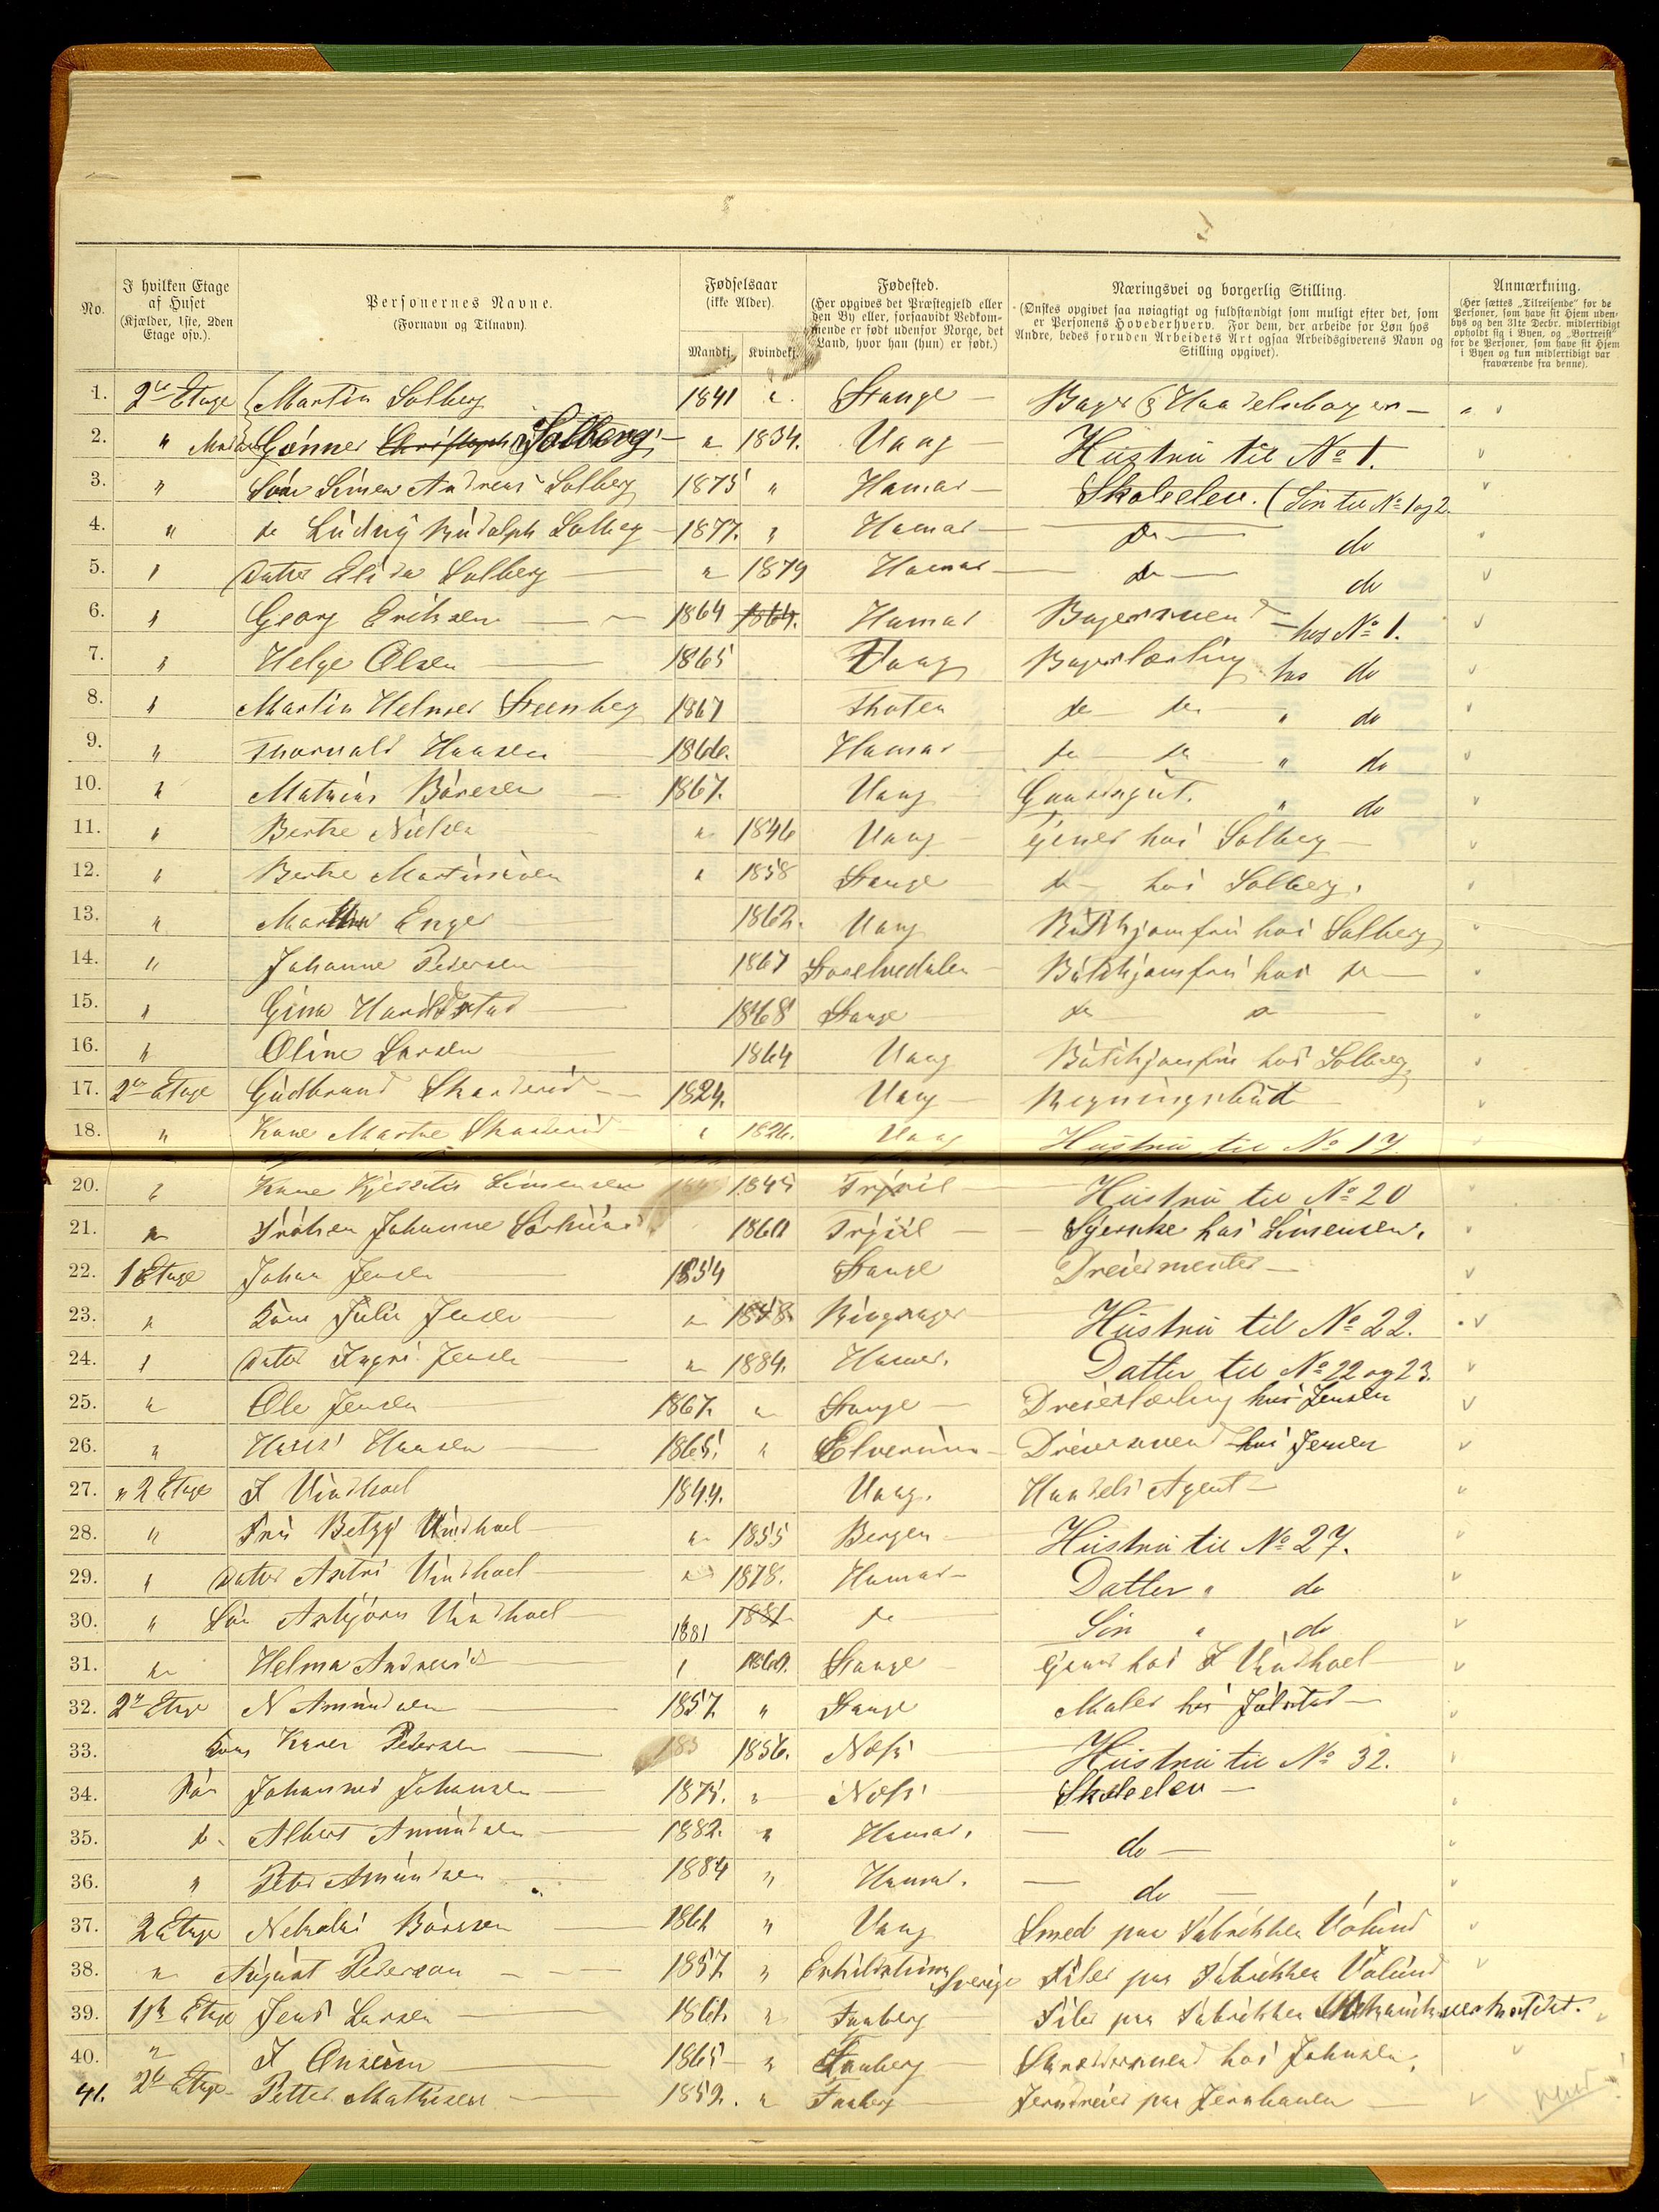 No.
I hvilken Etage af Huset (Kjælder, 1ste, 2den Etage osv.).
Personernes Navne. (Fornavn og Tilnavn).
Fødselsaar (ikke Alder).
Mandkj. Kvindekj.
Fødested. (Her opgives det Præstegjeld eller den By eller, forsaavidt Vedkommende er født udenfor Norge, det Land, hvor han (hun) er født.)
Næringsvei og borgerlig Stilling. (Ønskes opgivet saa nøiagtigt og fuldstændigt som muligt efter det, som er Personens Hovederhverv. For dem, der arbeide for Løn hos Andre, bedes foruden Arbeidets Art ogsaa Arbeidsgiverens Navn og Stilling opgivet).
Anmærkning. (Her sættes „Tilreisende“ for de Personer, som have sit Hjem udenbys og den 31te Decbr. midlertidigt opholdt sig i Byen, og „Bortreist“ for de Personer, som have sit Hjem i Byen og kun midlertidigt var fraværende fra denne).
1. 2de Etage Martin Solberg 1841 " Stange Bager & Handelsborger
2. " Gønner Solberg " 1834. Vang Hustru til No 1.
3. " Søn Simen Andreas Solberg 1875 " Hamar Skoleelev. (Søn til No 1 og 2.
4. " do Ludvig Rudolph Solberg 1877. " Hamar do do
5. " Datter Elida Solberg " 1879 Hamar do do
6. " Georg Eriksen 1864 1864. Hamar Bagersvend hos No 1.
7. " Helge Olsen 1865 Vang Bagerlærling hos do
8. " Martin Helmer Steenberg 1867 Thoten do do " do
9. " Thorvald Hansen 1866. Hamar do do " do
10. " Mathias Børesen 1867. Vang Gaardsgut. " do
11. " Berthe Nielsen " 1846 Vang Tjener hos Solberg
12. " Berthe " 1858 Stange do hos Solberg.
13. " Enger 1862. Vang Butikjomfru hos Solberg
14. " Johanne Pedersen 1867 Butikjomfru hos do
15. " Gina 1868 Stange do do
16. " Oline Larsen 1864 Vang Butikjomfru hos Solberg
17. 2de Etage Gudbrand 1824. Vang
18. " Kone Marthe 1826. Vang Hustru til No 17.
20. " Kone Kjersti Simensen 1845 Trysil Hustru til No 20
21. " Frøken Johanne 1860 Trysil Syerske hos Simensen.
22. 1 Etage Johan Jensen 1854 Stange Dreiermester
23. " Kone Julie Jensen " 1848 Ringsager Hustru til No 22.
24. " Datter Ingri Jensen " 1884. Hamar. Datter til No 22 og 23.
25. " Ole Jensen 1867. " Stange Dreierlærling hos Jensen
26. " Hans Hansen 1865. " Elverum Dreiersvend hos Jensen
27. " 2 Etage Vindhoel 1849. Vang. Handels Agent
28. " Fru Betzy Vindhoel " 1855 Bergen Hustru til No 27.
29. " Datter Astri Vindhoel " 1878. Hamar Datter " do
30. " Søn Asbjørn Vindhoel 1881 1881 do Søn " do
31. " Helma 1860. Stange Tjener hos Vindhoel
32. 2de Etage N Amundsen 1857. " Stange Maler hos
33. Kone Karen Pedersen 1856. Næss Hustru til No 32.
34. Søn Johannes Johansen 1875. " Næss Skoleelev
35. do Albert Amundsen 1882. " Hamar. do
36. " Peter Amundsen 1884 " Hamar. do
37. 2 Etage Børesen 1861 " Vang Smed paa Fabrikken Vølund
38. " August Pedersson 1857. " Eskilstuna Sverige Filer paa Fabrikken Vølund
39. 1ste Etage Jens Larsen 1861. " Faaberg Filer paa Fabrikken
40. " 1865 " Faaberg hos Johnsen.
41. 2de Etage Petter Mathisen 1852. " Faaberg Jerndreier paa Jernbanen